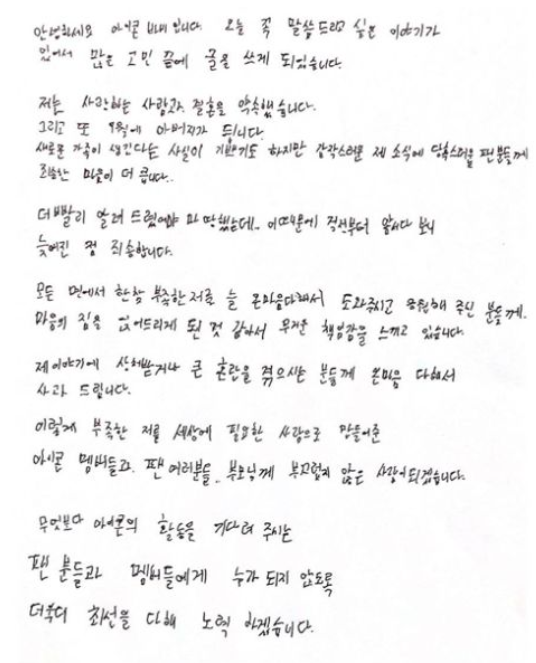 안녕하세요 아이콘 바비 입니다. 오늘 꼭 말씀 드리고 싶은 이야기가
있어서 많은 고민 끝에 글을 쓰게 되었습니다.
저는 사랑하는 사람과 결혼을 약속했습니다.
그리고 또 9월에 아버지가 됩니다.
새로운 가족이 생긴다는 사실이 기쁘기도 하지만 갑작스러운 제 소식에 당혹스러울 팬분들께
죄송한 마음이 더 큽니다.
더 빨리 알려 드렸어야 마땅했는데.. 이 때문에 걱정부터 앞서다 보니
늦어진 점 죄송합니다.
모든 면에서 한참 부족한 저를 늘 온마음다해서 도와주시고 응원해 주신 분들께.
마음의 짐을 얹어드리게 된 것 같아서 무거운 책임감을 느끼고 있습니다.
제이야기에 상처받거나 큰 혼란을 겪으시는 분들께 온마음 다해서
사과 드립니다.
이렇게 부족한 저를 세상에 필요한 사람으로 만들어준
아이콘 멤버들과, 팬 여러분들, 부모님께 부끄럽지 않은 사람이되겠습니다.
무엇보다 아이콘의 활동을 기다려 주시는
팬 분들과 멤버들에게 누가 되지 않도록
더욱더 최선을 다해 노력 하겠습니다.